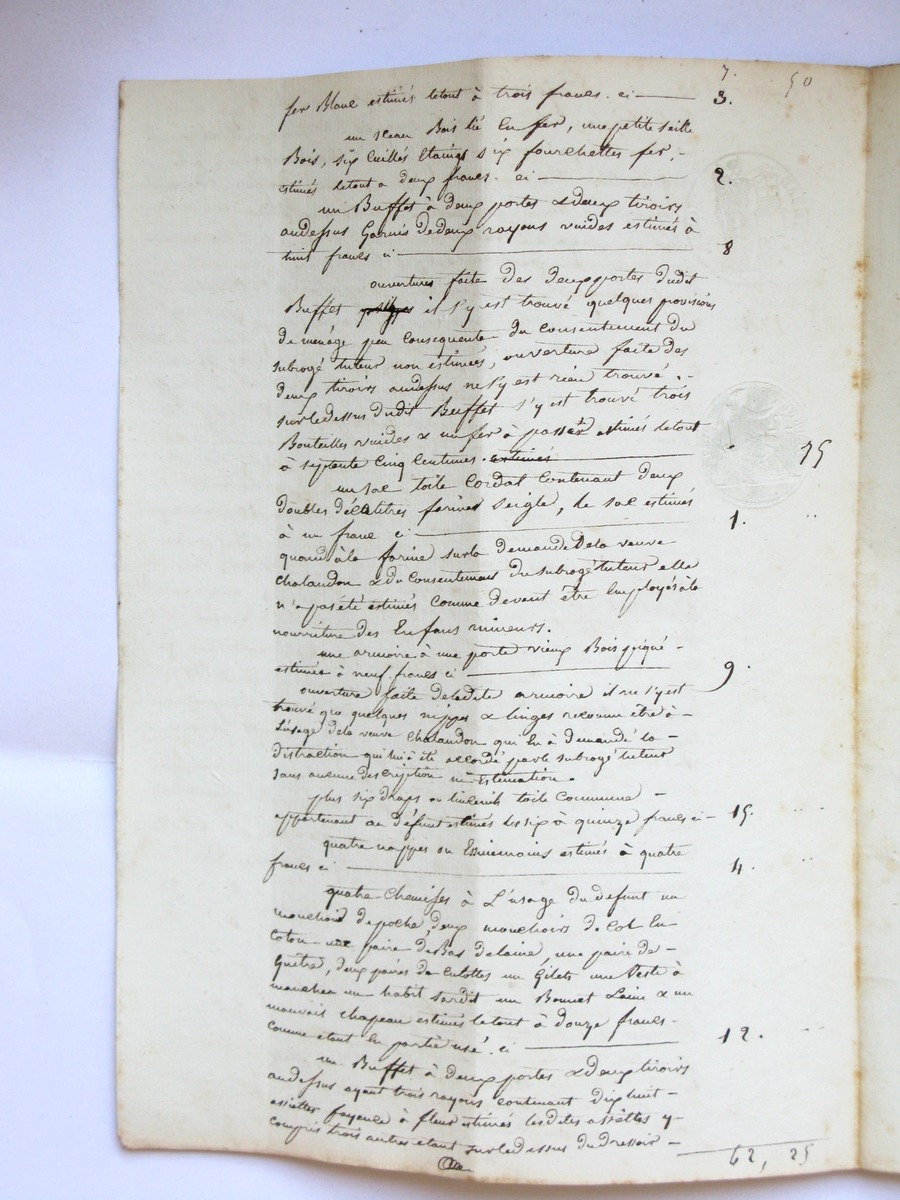 7.
50
fer Blanc estimés letout à trois francs. ci — 3.
un sceau Bois lié En fer, une petite seille
Bois, six Cuillés Etaings six fourchettes fer, -
estimés letout a deux francs. ci — 2.
un Buffet à deux portes & deux tiroirs
audessus Garnis dedeux rayons vuides estimés à
huit francs ci — 8
ouverture faite des deux portes dudit
Buffet il s'y est trouvé quelques provisions
de ménage peu Consequente du consentement du
subrogé tuteur non estimées, ouverture faite des
deux tiroirs audessus ne s'y est rien trouvé. -
sur ledessus dudit Buffet s'y est trouvé trois
Bouteilles vuides & un fer à passer estimés letout
à septente Cinq Centimes. estimés — " 75
un sac toile Cordat Contenant deux
doubles décalitres farines seigle, le sac estimés
à un franc ci — 1.
quand à la farine sur la demande dela veuve
Chalandon & du Consentement du subrogé tuteur elle
n'a pas été estimés Comme devant être Employés à la
nourriture des Enfans mineurs.
une armoire à une porte vieux Bois piqué -
estimée à neuf francs ci — 9.
ouverture faite deladite armoire il ne s'y est
trouvé que quelques nippes & linges reconnu être à -
L'usage dela veuve Chalandon qui En à demandé la -
distraction qui lui à été accordé par le subrogé tuteur
sans aucune description ni Estimation.
plus six draps ou linceuils toile Commune -
appartenant au défunt estimés les six à quinze francs ci - 15.
quatre nappes ou Essuiemains estimés à quatre
francs ci — 4.
quatre Chemises à L'usage du defunt un
mouchoir depoche, deux mouchoirs de Col En
Coton une paire de Bas delaine, une paire de -
Guêtre, deux paires de Culottes un Gilets une Veste à
manches un habit sardit un Bonnet Laine & un
mauvais chapeau estimés letout à douze francs -
Comme etant En partie usé. ci — 12.
un Buffet à deux portes & deux tiroirs
audessus ayant trois rayons contenant dix huit -
assiettes fayence à fleur estimés lesdites assiettes y -
Compris trois autres etant sur ledessus du dressoir -
62, 25